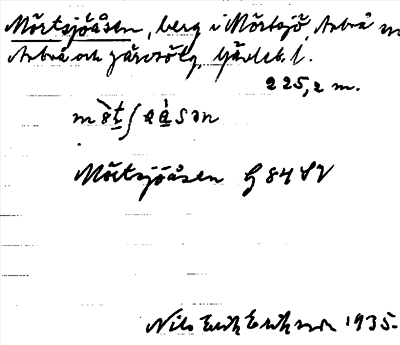 Mörtsjöåsen, berg i Mörtsjö, Arbrå
Arbrå och Järvsö tg, Gävleb. l.
225,2 m.
Mörtsjöåsen G 84 SV
Nils Erik Erikson 1935.